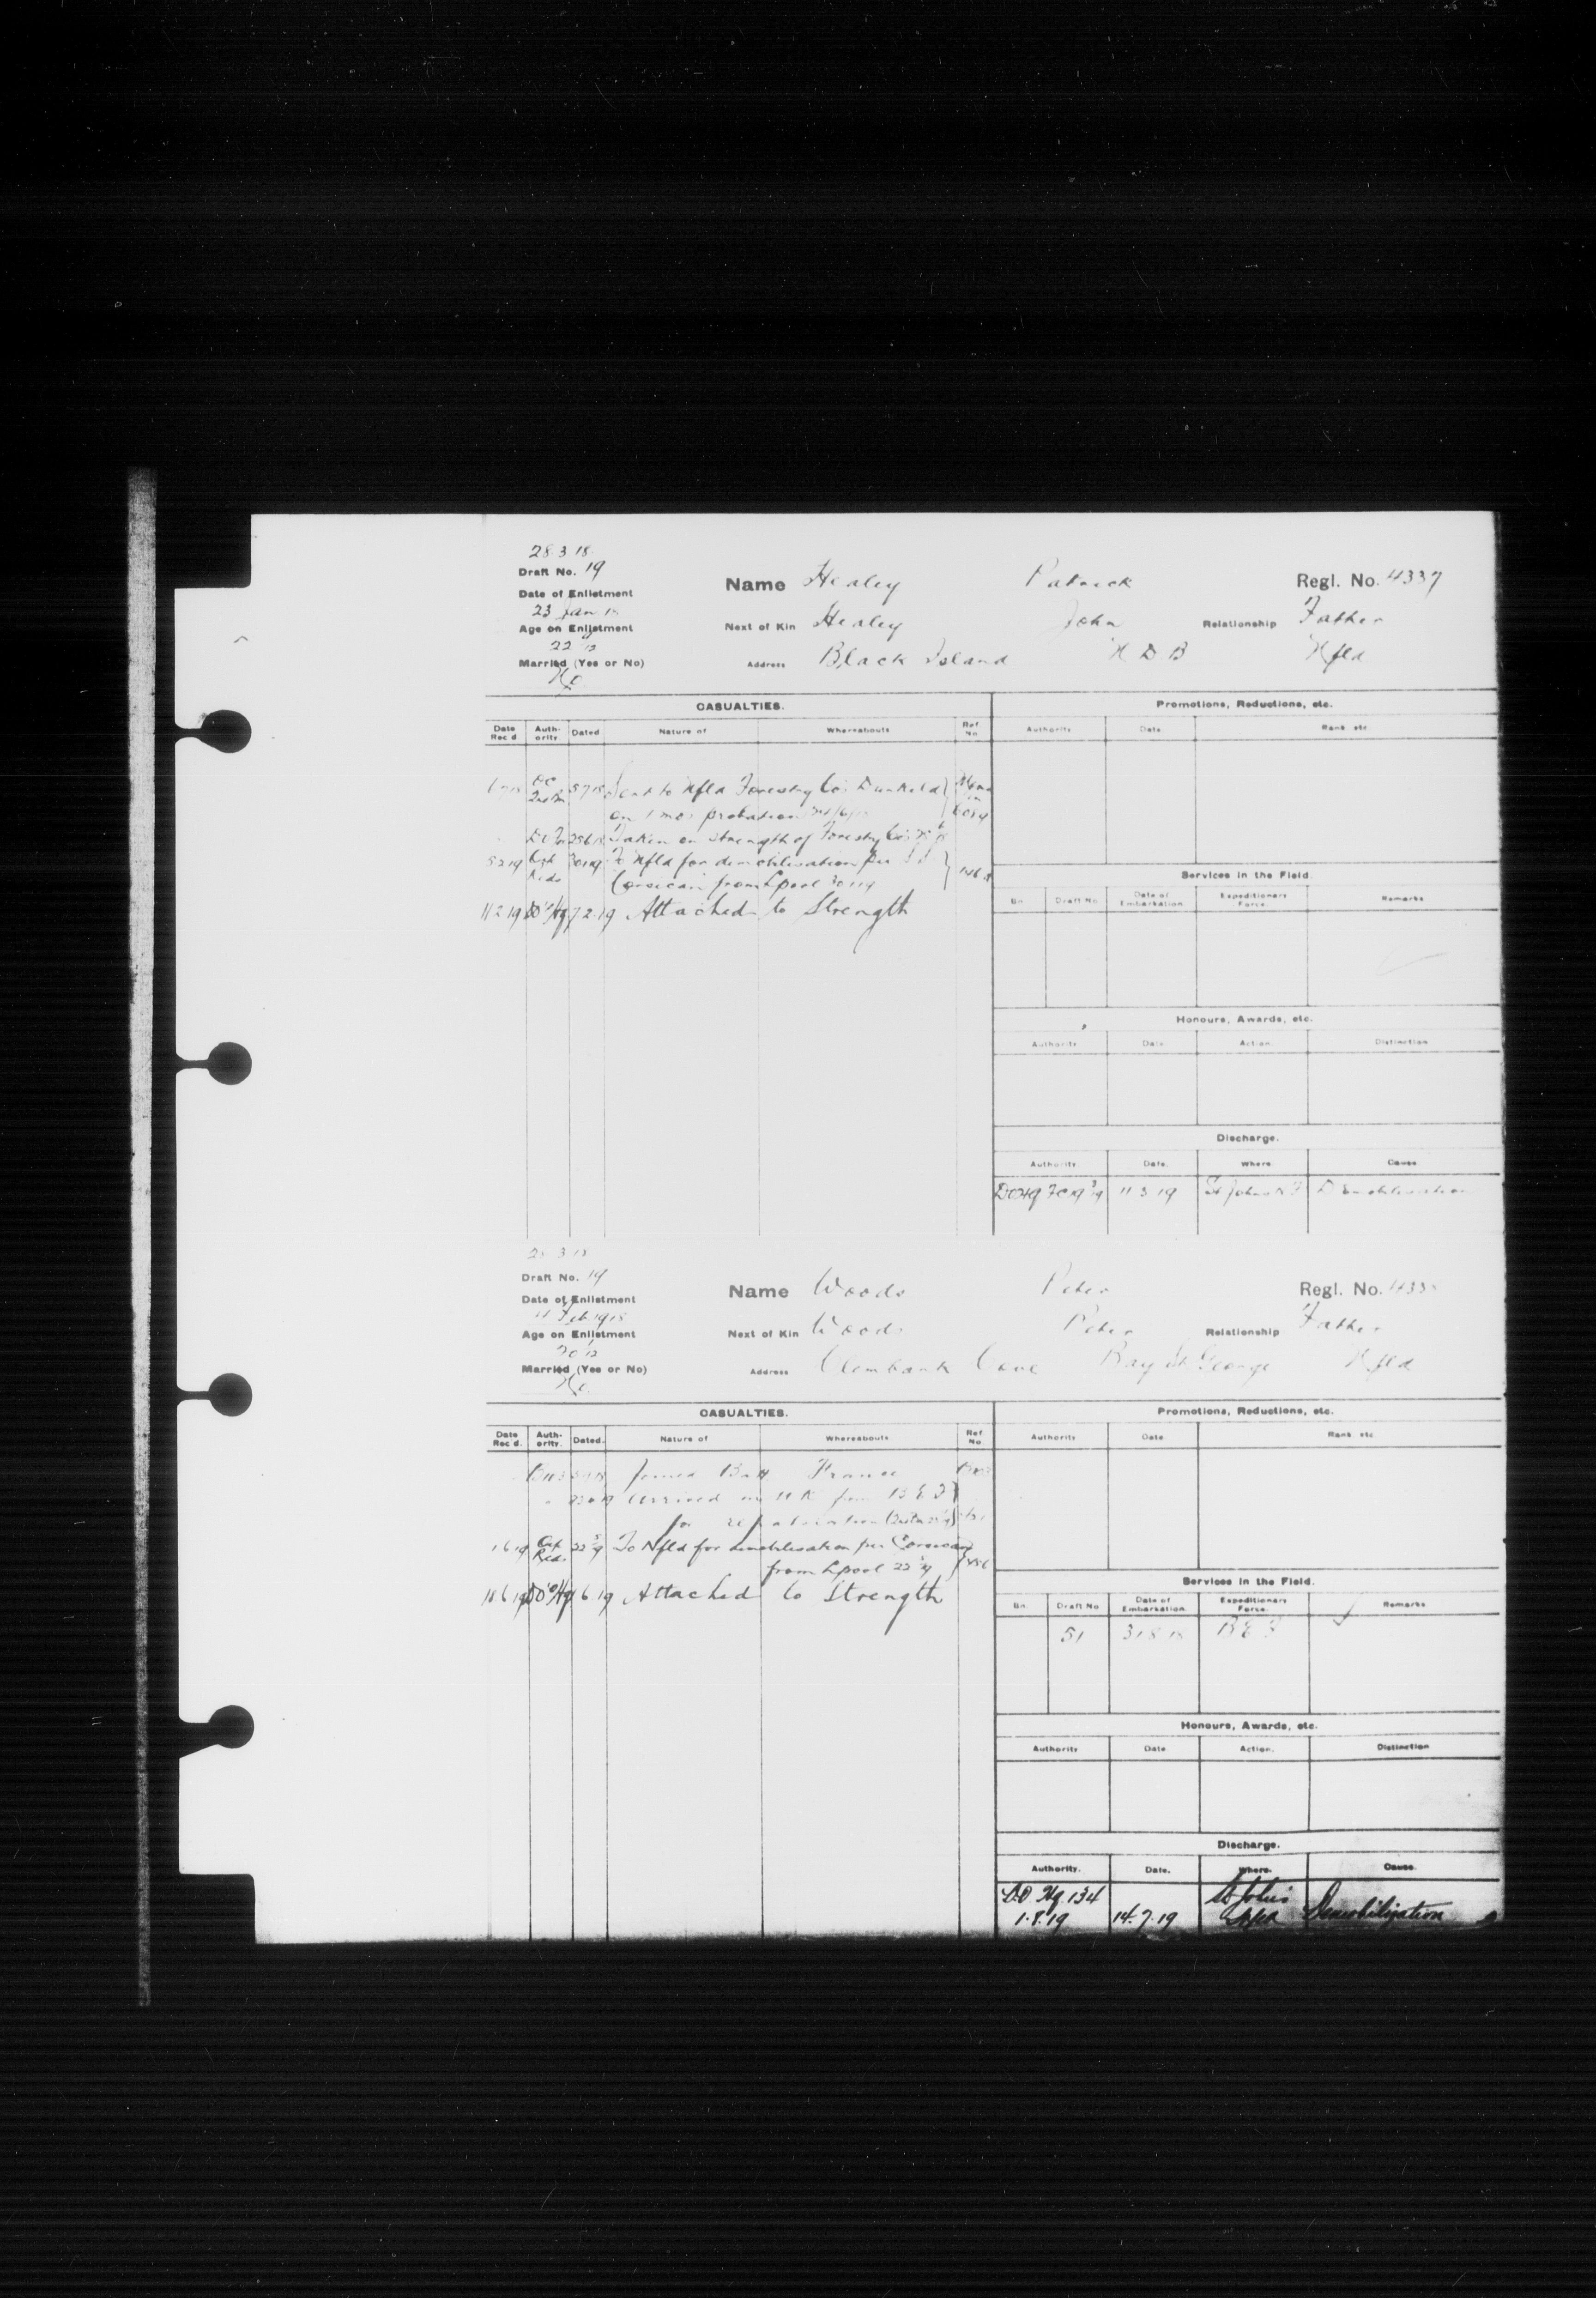 28.3.18
Draft No. 19
Name Healey Patrick Regl. No. 4337
Date of Enlistment
23 Jan 18
Next of Kin Healey John Relationship Father
Age on Enlistment
22
Address Black Island N D B Nfld
Married (Yes or No)
No
CASUALTIES. Promotions, Reductions, etc.
Date Rec'd Authority Dated Nature of Whereabouts Ref No Authority Date Rank etc
Sent to Nfld Forestry Co's Dunkeld
on 1 mos probation
Taken on Strength of Forestry Co's
5 2 19 30 1 19 To Nfld for demobilisation per
Corsican from Lpool 30 1 19
11 2 19 DO Hq 7 2 19 Attached to Strength
Services in the Field.
Bn. Draft No Date of Embarkation. Expeditionary Force. Remarks
Honours, Awards, etc.
Authority Date Action. Distinction
Discharge.
Authority Date. Where Cause
11 3 19 St Johns N F Demobilisation
Draft No. 19
Name Woods Peter Regl. No.
Date of Enlistment
11 Feb 1918
Next of Kin Woods Peter Relationship Father
Age on Enlistment
Address Clambank Cove Bay St George Nfld
Married (Yes or No)
No
CASUALTIES. Promotions, Reductions, etc.
Date Rec'd. Authority. Dated. Nature of Whereabouts Ref No. Authority Date Rank etc
Joined Batt France
Arrived in U K from B E F
for repatriation
1 6 19 22 5 19 To Nfld for demobilisation per Corsican
from Lpool 22 5 19
18 6 19 DO Hq 6 19 Attached to Strength
Services in the Field.
Bn. Draft No Date of Embarkation. Expeditionary Force. Remarks
51 31 8 18 B E F
Honours, Awards, etc.
Authority Date Action. Distinction
Discharge.
Authority. Date. Where. Cause.
DO Hq 134 St John's
1.8.19 14.7.19 Nfld Demobilization